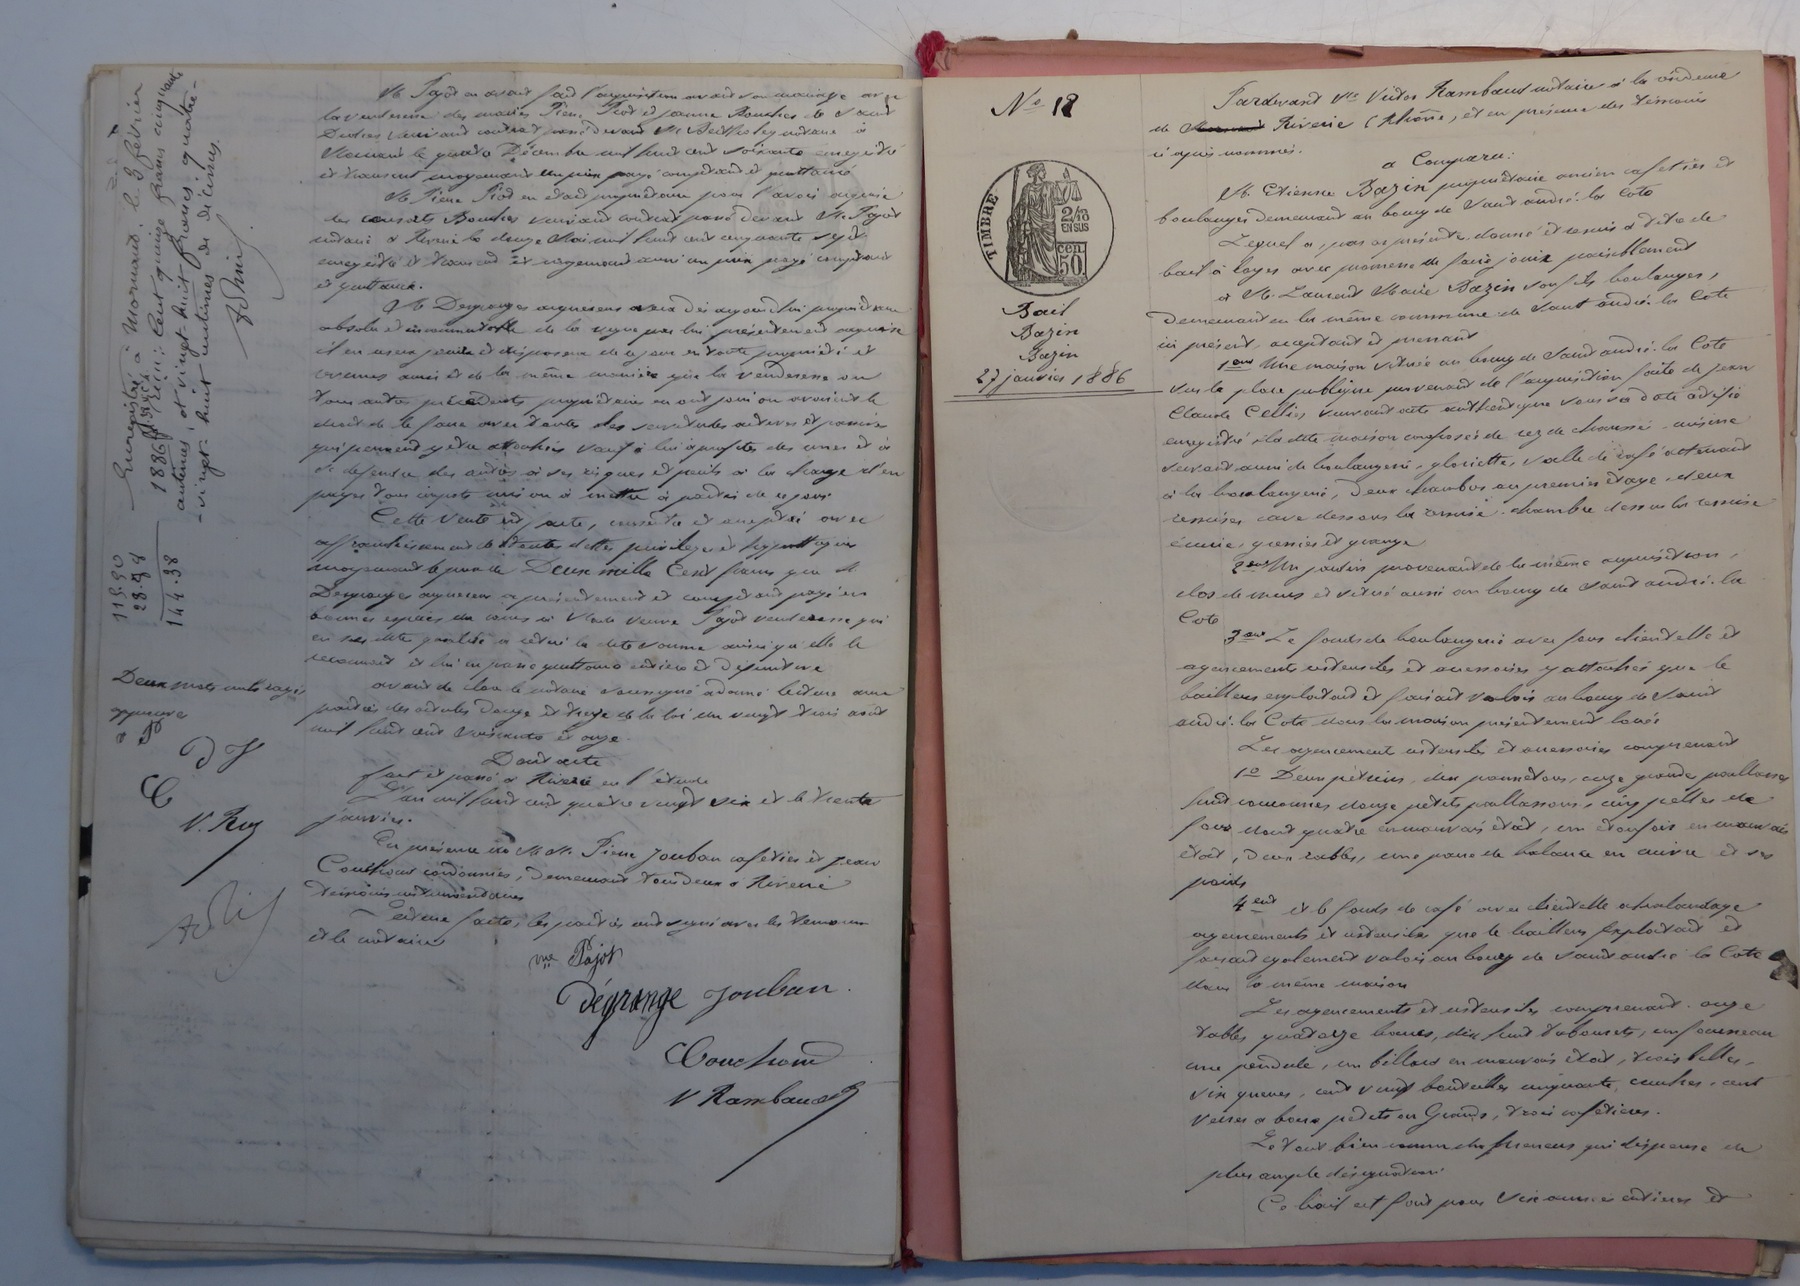 M. Pajot en avait fait l'acquisition avant son mariage avec
la venderesse des mariés Pierre Piot et Jeanne Bouchet de Saint
Didier suivant contrat passé devant Me notaire à
Mornant le quatre Décembre mil huit cent soixante enregistré
et transcrit moyennant un prix payé comptant et quittancé
M. Pierre Piot en était propriétaire pour l'avoir acquise
des consorts Bouchet suivant contrat passé devant Me Pajot
notaire à Riverie le douze Mai mil huit cent cinquante sept
enregistré et transcrit et moyennant aussi un prix payé comptant
et quittancé.
M. Desgranges acquéreur sera dès aujourd'hui propriétaire
absolu et incommutable de la vigne par lui présentement acquise
il en usera jouira et disposera de ce jour en toute propriété et
comme aussi et de la même manière que la venderesse ou
tous autres précédents propriétaires en ont joui ou avaient le
droit de le faire avec toutes des servitudes actives et passives
qui peuvent y être attachées sauf à lui à profiter des unes et à
se défendre des autres à ses risques et périls à la charge d'en
payer tous impôts mis ou à mettre à partir de ce jour
Cette vente est faite, consentie et acceptée avec
affranchissement de toutes dettes privilèges et hypothèques
moyennant le prix de Deux mille Cent francs que M.
Desgranges acquéreur a présentement et comptant payé en
bonnes espèces du cours à Made veuve Pajot venderesse qui
en sa dite qualité a retiré la dite somme ainsi qu'elle le
reconnait et lui en passe quittance entière et définitive
avant de clore le notaire soussigné a donné lecture aux
parties des articles douze et treize de la loi du vingt trois août
mil huit cent soixante et onze.
Dont acte
fait et passé à Riverie en l'étude
L'an mil huit cent quatre vingt six et le trente
janvier.
En présence de M.M. Pierre Jouban cafetier et Jean
Couchoud cordonnier, demeurant tous deux à Riverie
témoins instrumentaires
Lecture faite, les parties ont signé avec les témoins
et le notaire
vve Pajot
Dégrange Jouban.
Couchoud
V Rambaud
Enregistré à Mornant le 3 février
1886 Reçu: Cent quinze francs cinquante
centimes, et vingt-huit francs quatre-
-vingt-huit centimes décimes.
115.50
28.88
144.38
Deux mots nuls rayés
approuvés
P
D J
C
V. Ray
No 18
TIMBRE
2/10
EN SUS
50 cen
Bail
Bazin
Bazin
27 janvier 1886
Pardevant Me Victor Rambaud notaire à la résidence
de Riverie (Rhône), et en présence des témoins
ci après nommés.
a Comparu:
M. Etienne Bazin propriétaire ancien cafetier et
boulanger demeurant au bourg de Saint andré-la Cote
Lequel a, par ces présentes donné et remis à titre de
bail à loyer avec promesse de faire jouir paisiblement
à M. Laurent Marie Bazin son fils boulanger,
demeurant en la même commune de Saint andré la Cote
ici présent, acceptant et prenant
1ent Une maison située au bourg de Saint andré-la Cote
sur la place publique provenant de l'acquisition faite de Jean
Claude Cellier, suivant acte authentique sous sa date
enregistré, la dite maison composée de rez de chaussée cuisine
servant aussi de boulangerie, gloriette, salle de café attenant
à la boulangerie, deux chambres au premier étage, deux
remises cave dessous la remise, chambre dessus la remise
écurie, grenier et grange
2ent Un jardin provenant de la même acquisition,
clos de murs et situé aussi au bourg de Saint andré-la
Cote
3ent Le fonds de boulangerie avec four clientelle et
agencements ustensiles et accessoires y attachés que le
bailleur exploitait et faisait valoir au bourg de Saint
andré-la Cote dans la maison présentement louée
Les agencements ustensiles et accessoires comprennent
1o Deux pétrins, dix pannetons, onze grandes paillasses
huit couronnes douze petits paillassons, cinq pelles de
four dont quatre en mauvais état, un étouffoir en mauvais
état, deux rables, une paire de balance en cuivre et ses
poids
4ent et le fonds de café avec clientelle achalandage
agencements et ustensiles que le bailleur exploitait et
faisait également valoir au bourg de Saint andré la Cote
dans la même maison
Les agencements et ustensiles comprennent. onze
tables quatorze bancs, dix huit tabourets, un fourneau
une pendule, un billard en mauvais état, trois billes,
six queues, cent vingt bouteilles cinquante cruches, cent
verres a boire petits ou Grands, trois cafetières.
Le tout bien connu du preneur qui dispense de
plus ample désignation
Ce bail est fait pour six années entières et